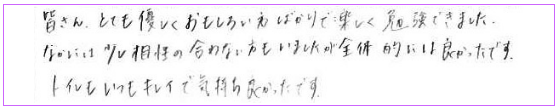 皆さん、とても優しくおもしろい方ばかりで楽しく勉強できました。
なかには少し相性の合わない方もいましたが全体的には良かったです。
トイレもいつもキレイで気持ち良かったです。